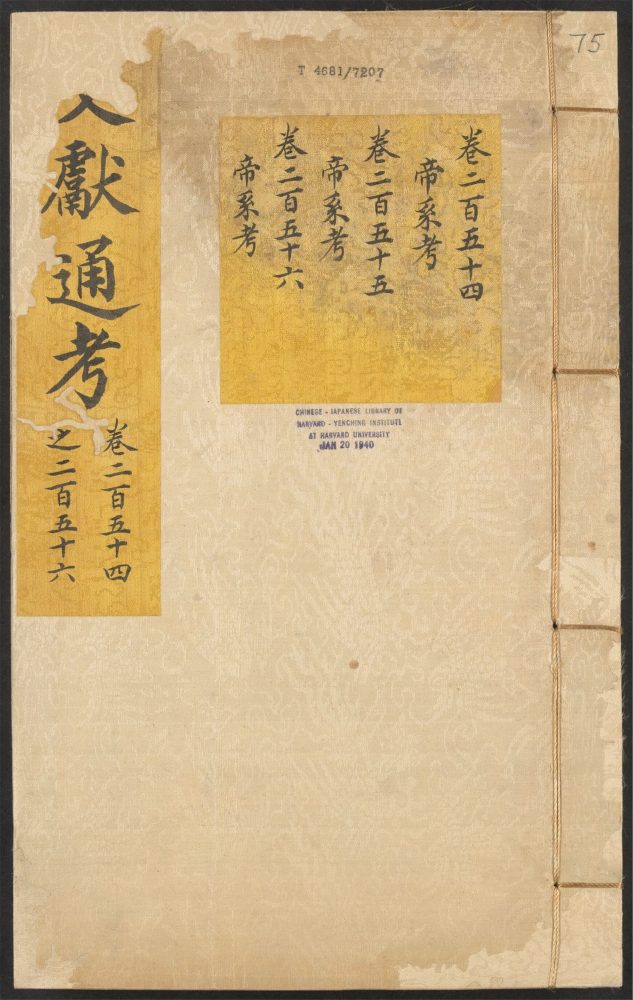 75
T 4681/7207
卷二百五十四
帝系考
卷二百五十五
帝系考
卷二百五十六
帝系考
獻通考
卷二百五十四
之二百五十六
CHINESE - JAPANESE LIBRARY OF
HARVARD - YENCHING INSTITUTE
AT HARVARD UNIVERSITY
JAN 20 1940